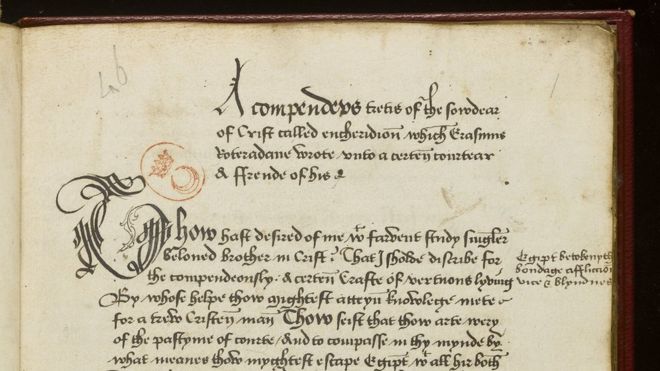 46
1
A compendeus tretis of the sowdear
of Crist called encheridion which Erasmus
Roteradane wrote vnto a certen courtear
& ffrende of his
Thow hast desired of me wt farvent study singler
beloued brother in Crist / That I sholde discribe for
the compendeously. A certen Crafte of vertuous lyving
By whose helpe thow mightest atteyn knowlege mete
for a trew Cristen man Thow seist that thow arte wery
of the pastyme of courte / And to compasse in thy mynde by
what meanes thow myghtest escape Egipt wt all hir both
Egipt betokenyth
bondage affliction
vice & blyndnes